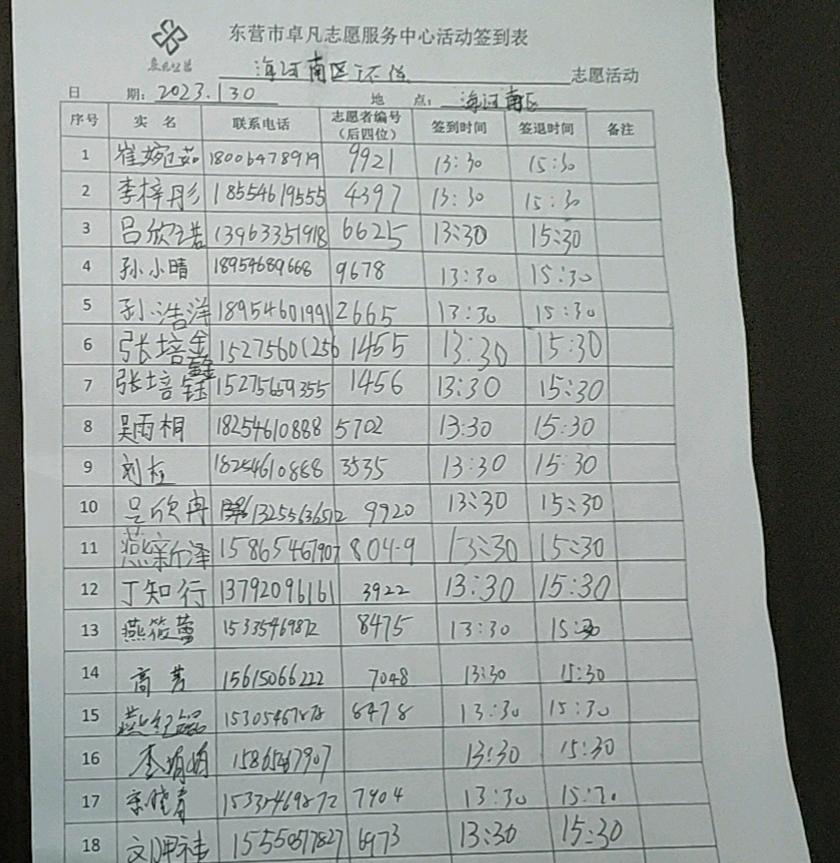 东营市卓凡志愿服务中心活动签到表
卓凡公益
海河南区环保 志愿活动
日 期: 2023.1 30 地 点: 海河南区
序号 实 名 联系电话 志愿者编号（后四位） 签到时间 签退时间 备注
1 崔婉茹 18006478919 9921 13:30 15:30
2 李梓彤 18554619555 4397 13:30 15:30
3 吕欣诺 13963351918 6625 13:30 15:30
4 孙小晴 18954689668 9678 13:30 15:30
5 孙浩洋 18954601991 2665 13:30 15:30
6 张培鑫 15275601256 1455 13:30 15:30
7 张培钰 15275669355 1456 13:30 15:30
8 吴雨相 18254610888 5702 13:30 15:30
9 刘 18254610888 3535 13:30 15:30
10 吴欣冉 13255636512 9920 13:30 15:30
11 燕新泽 15865467907 804-9 13:30 15:30
12 丁知行 13792096161 3922 13:30 15:30
13 燕筱蕾 8475 13:30 15:30
14 高芳 15615066222 7048 13:30 15:30
15 燕 6478 13:30 15:30
16 李娟娟 13:30 15:30
17 宋晓春 7904 13:30
18 15550577827 6973 13:30 15:30